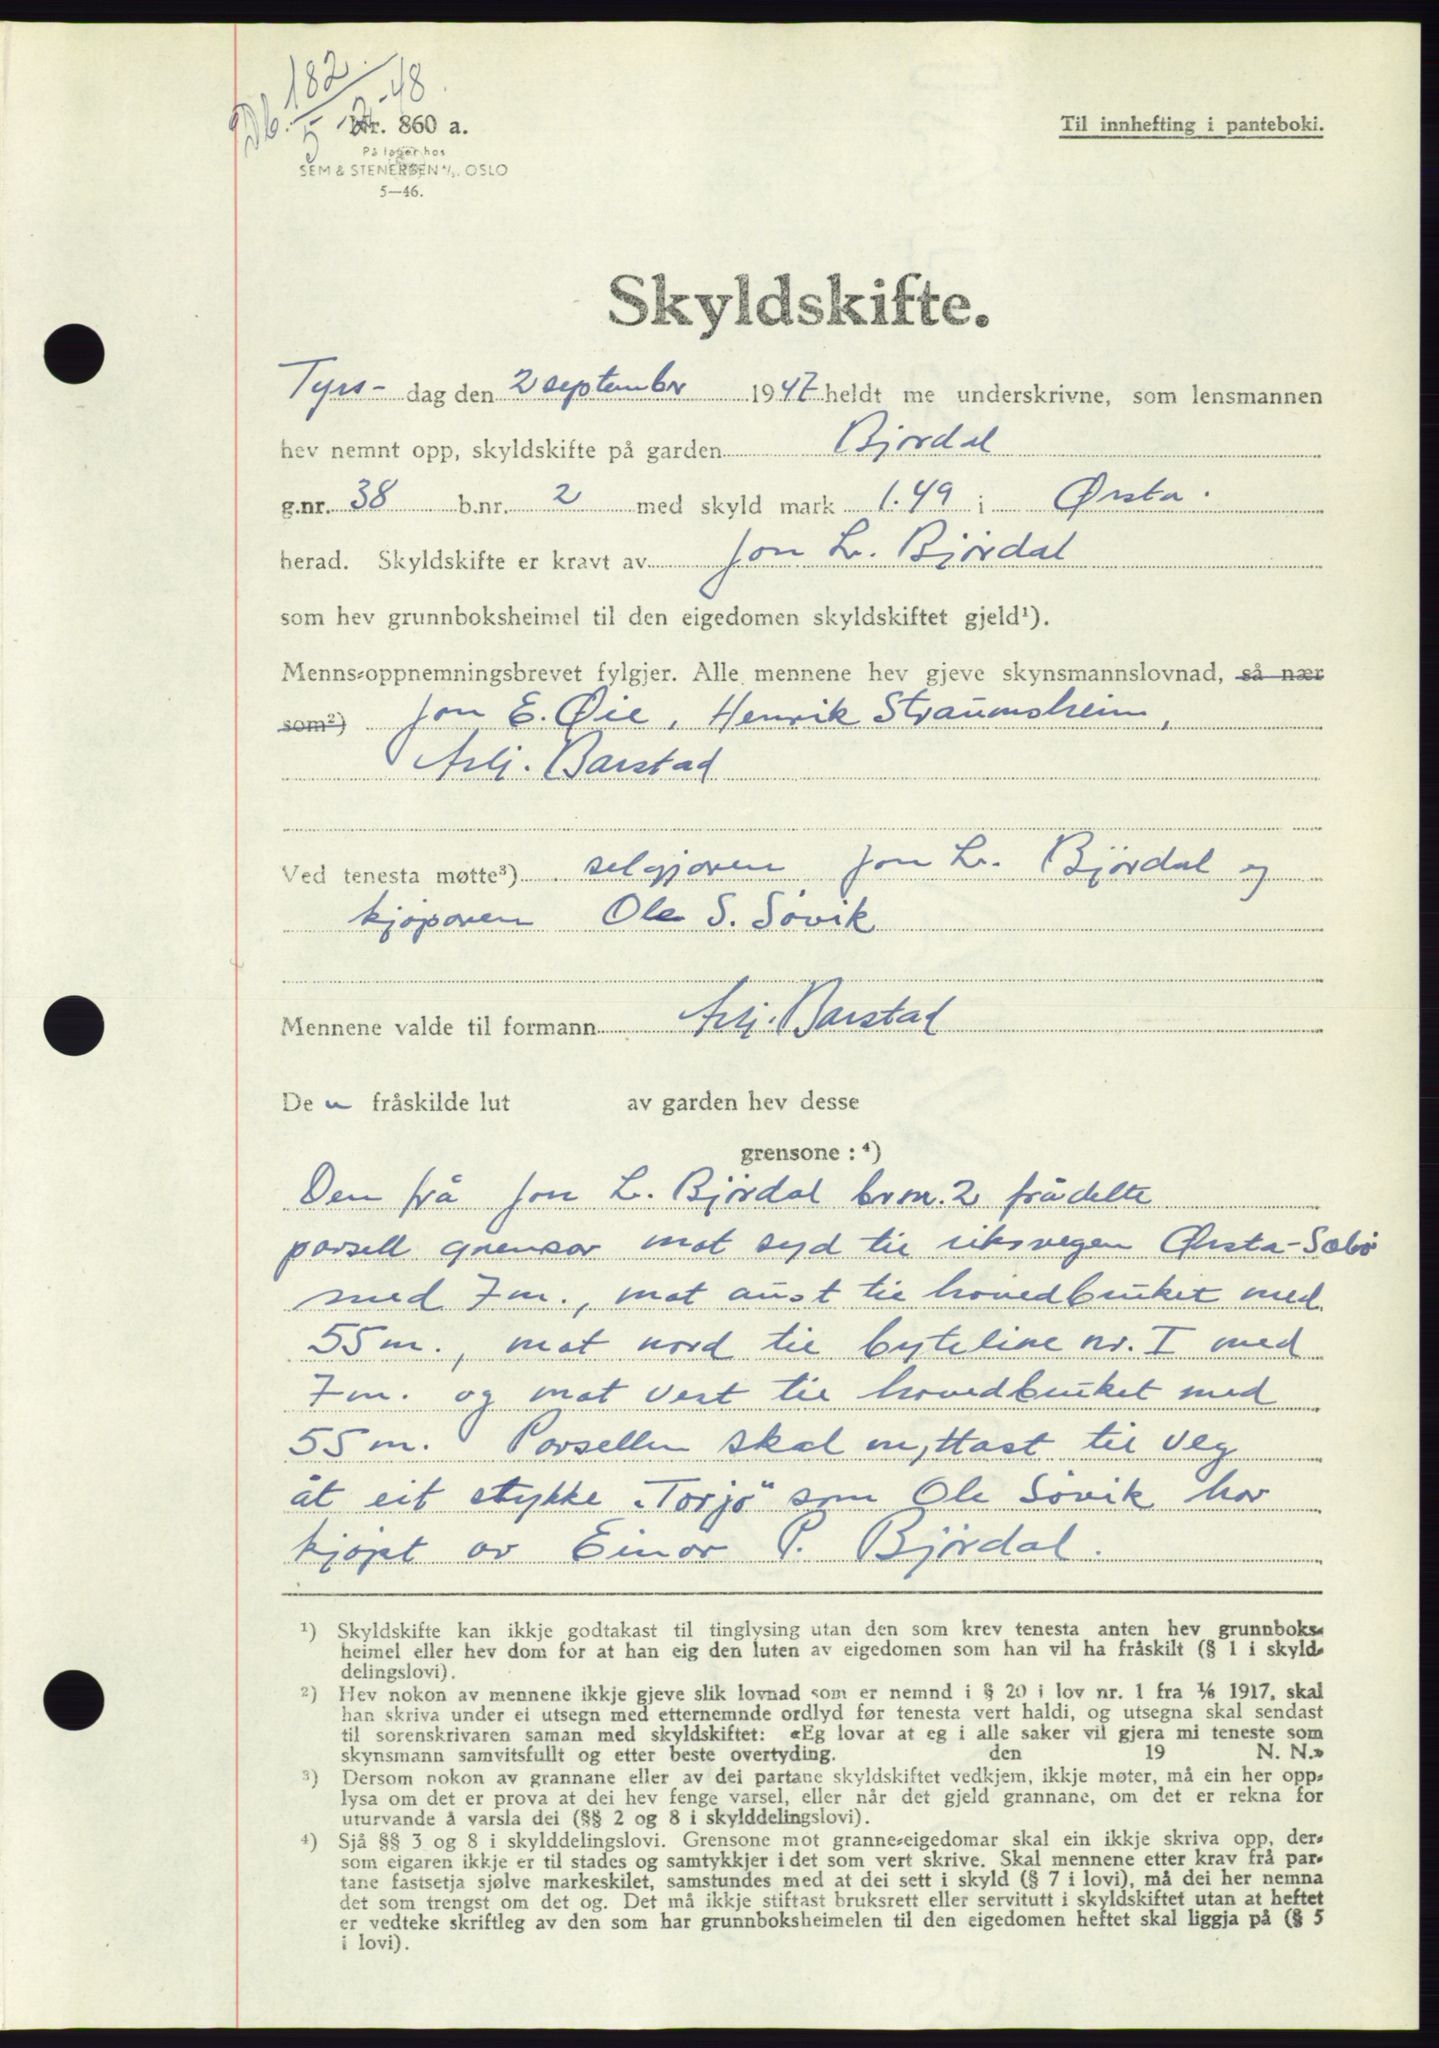 Db. 182
5-2-48.
Nr. 860 a.
På lager hos
SEM & STENERSEN A/S. OSLO
5—46.
Til innhefting i panteboki.
Skyldskifte.
Tyrs- dag den 2 septembr 1947 heldt me underskrivne, som lensmannen
hev nemnt opp, skyldskifte på garden Bjørdal
g.nr. 38 b.nr. 2 med skyld mark 1.49 i Ørsta.
herad. Skyldskifte er kravt av Jon L. Bjørdal
som hev grunnboksheimel til den eigedomen skyldskiftet gjeld¹).
Menns-oppnemningsbrevet fylgjer. Alle mennene hev gjeve skynsmannslovnad, så nær
som²) Jon E. Øie, Henrik Straumsheim,
Asbj. Barstad
Ved tenesta møtte³) seljaren Jon L. Bjørdal og
kjøparen Ole S. Søvik
Mennene valde til formann Asbj. Barstad
De n fråskilde lut av garden hev desse
grensone : ⁴)
Den frå Jon L. Bjørdal brnr. 2 frådelte
parsell grensar mot syd til riksvegen Ørsta-Sæbø
med 7 m., mot aust til hovedbruket med
55 m., mot nord til byteline nr. I med
7 m. og mot vest til hovedbruket med
55 m. Parsellen skal nyttast til veg
åt eit stykke „Torjo" som Ole Søvik har
kjøpt av Einar P. Bjørdal.
¹) Skyldskifte kan ikkje godtakast til tinglysing utan den som krev tenesta anten hev grunnboks-
heimel eller hev dom for at han eig den luten av eigedomen som han vil ha fråskilt (§ 1 i skyld-
delingslovi).
²) Hev nokon av mennene ikkje gjeve slik lovnad som er nemnd i § 20 i lov nr. 1 fra 1/6 1917, skal
han skriva under ei utsegn med etternemnde ordlyd før tenesta vert haldi, og utsegna skal sendast
til sorenskrivaren saman med skyldskiftet: «Eg lovar at eg i alle saker vil gjera mi teneste som
skynsmann samvitsfullt og etter beste overtyding. den 19 N. N.»
³) Dersom nokon av grannane eller av dei partane skyldskiftet vedkjem, ikkje møter, må ein her opp-
lysa om det er prova at dei hev fenge varsel, eller når det gjeld grannane, om det er rekna for
uturvande å varsla dei (§§ 2 og 8 i skylddelingslovi).
⁴) Sjå §§ 3 og 8 i skylddelingslovi. Grensone mot granne-eigedomar skal ein ikkje skriva opp, der-
som eigaren ikkje er til stades og samtykkjer i det som vert skrive. Skal mennene etter krav frå par-
tane fastsetja sjølve markeskilet, samstundes med at dei sett i skyld (§ 7 i lovi), må dei her nemna
det som trengst om det og. Det må ikkje stiftast bruksrett eller servitutt i skyldskiftet utan at heftet
er vedteke skriftleg av den som har grunnboksheimelen til den eigedomen heftet skal liggja på (§ 5
i lovi).